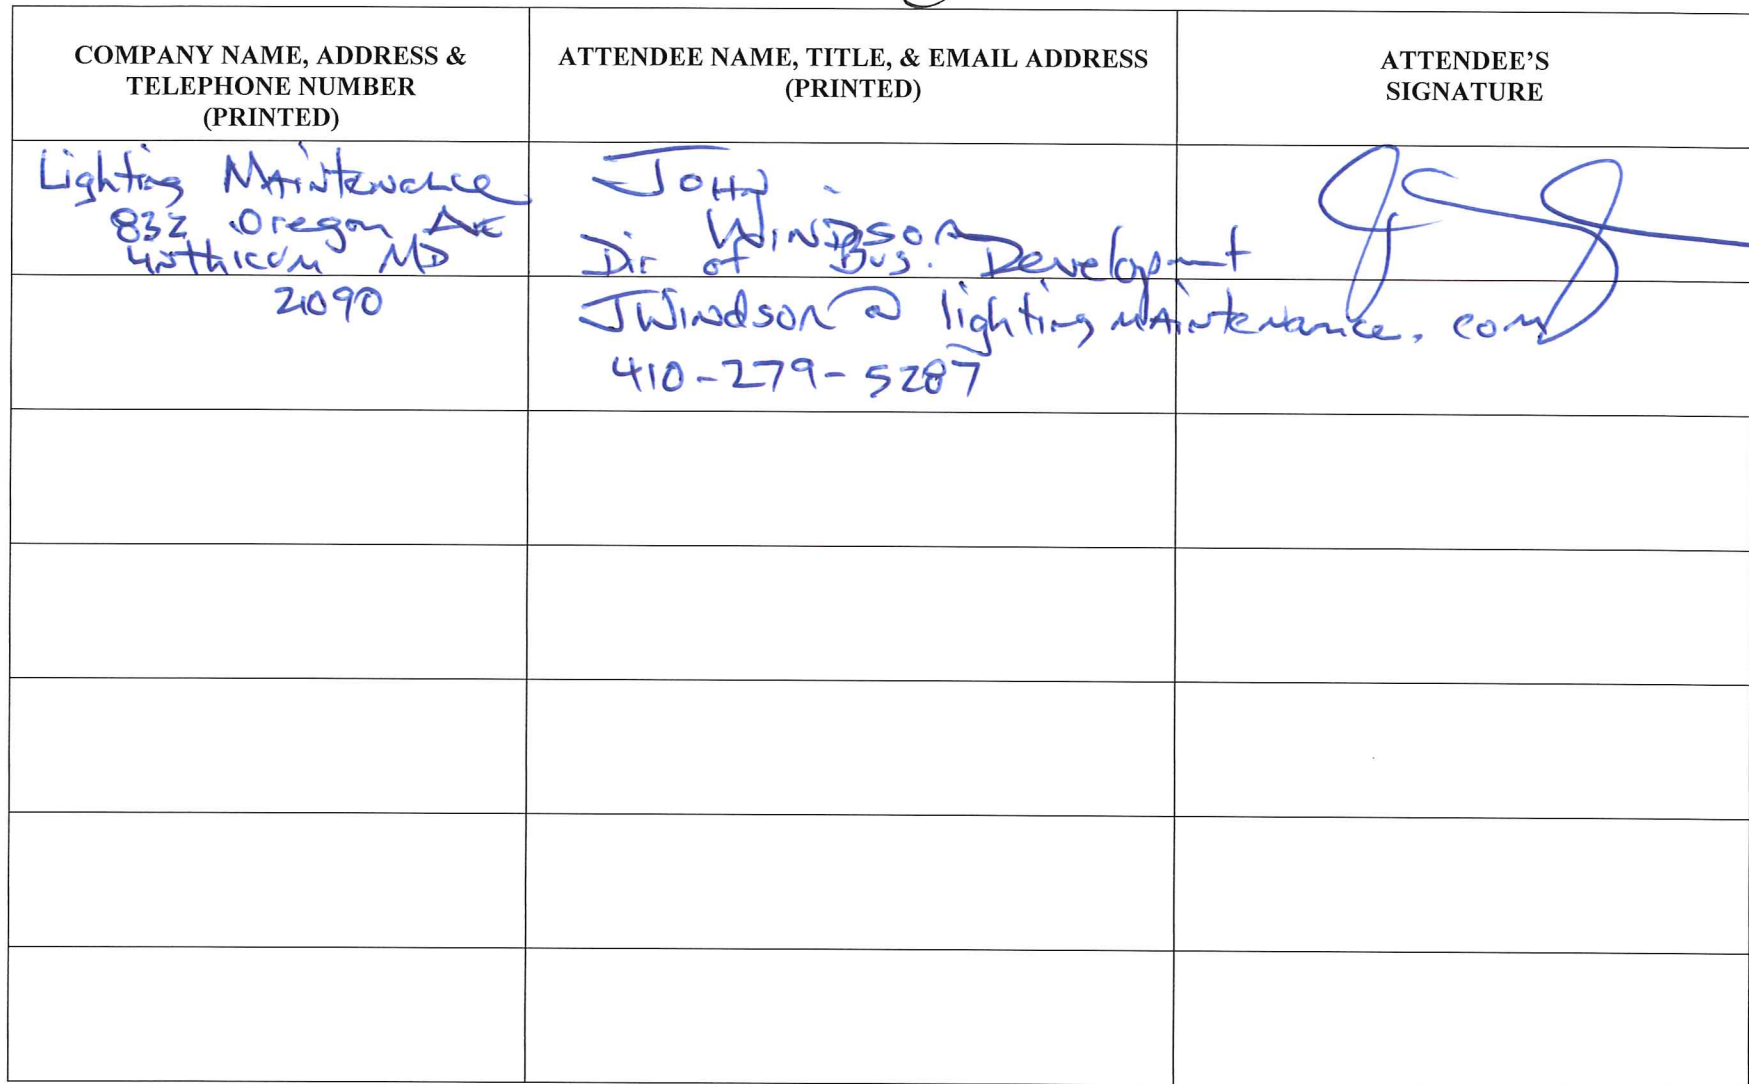 COMPANY NAME, ADDRESS &
TELEPHONE NUMBER
(PRINTED)
ATTENDEE NAME, TITLE, & EMAIL ADDRESS
(PRINTED)
ATTENDEE'S
SIGNATURE
Lighting Maintenance
832 Oregon Ave
Linthicum MD
21090
JOHN
WINDSOR
Dir of Bus. Development
JWindsor@lightingmaintenance.com
410-279-5287